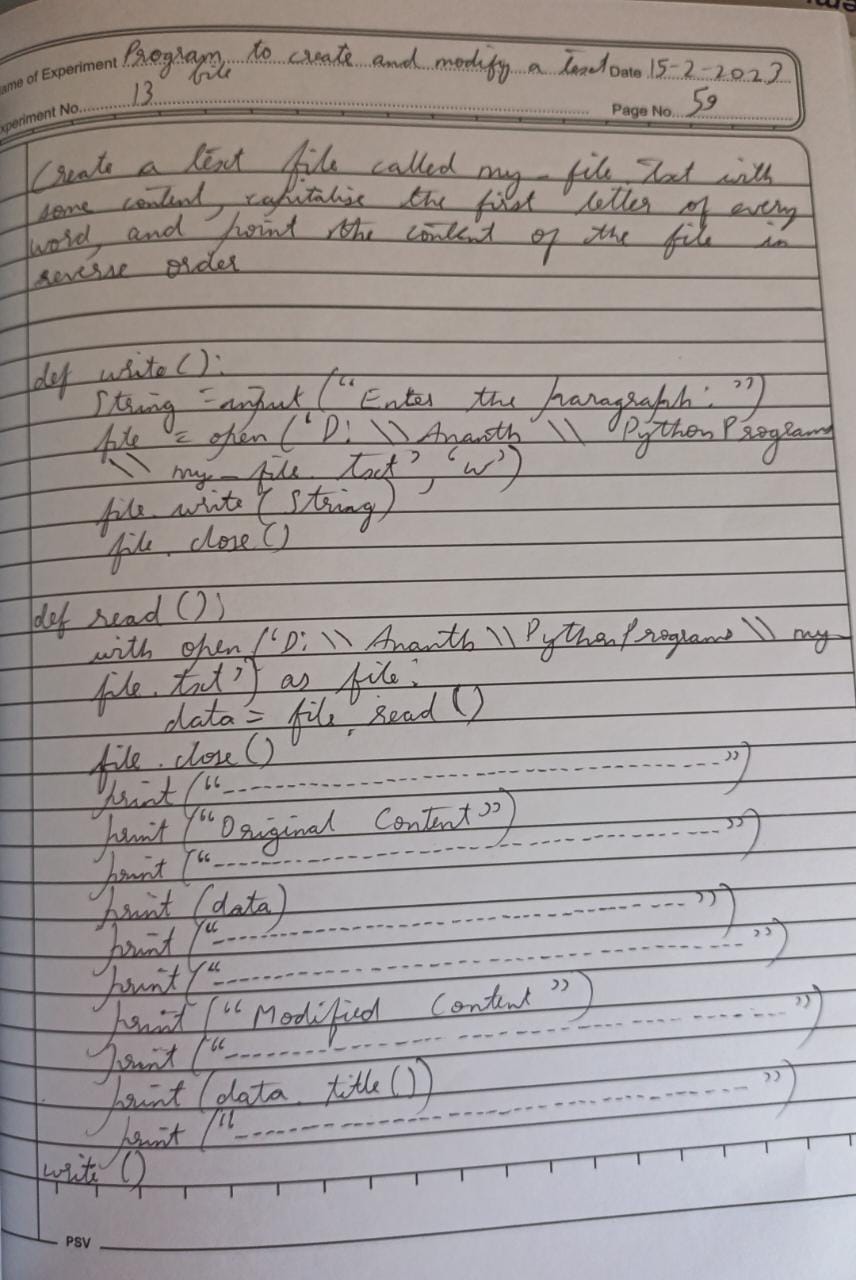 ame of Experiment Program to create and modify a text Date 15-2-2023
file
xperiment No. 13 Page No. 59
Create a text file called my_file.txt with
some content, capitalise the first letter of every
word, and print the content of the file in
reverse order
def write():
String = input ("Enter the paragraph: ")
file = open ('D:\\Ananth\\PythonPrograms
\\my_file.txt', 'w')
file.write(String)
file.close()
def read():
with open('D:\\Ananth\\PythonPrograms\\my
file.txt') as file:
data = file.read()
file.close()
print("------------------------------------")
print("Original Content")
print("------------------------------------")
print(data)
print("------------------------------------")
print("------------------------------------")
print("Modified Content")
print("------------------------------------")
print(data.title())
print("------------------------------------")
write()
PSV